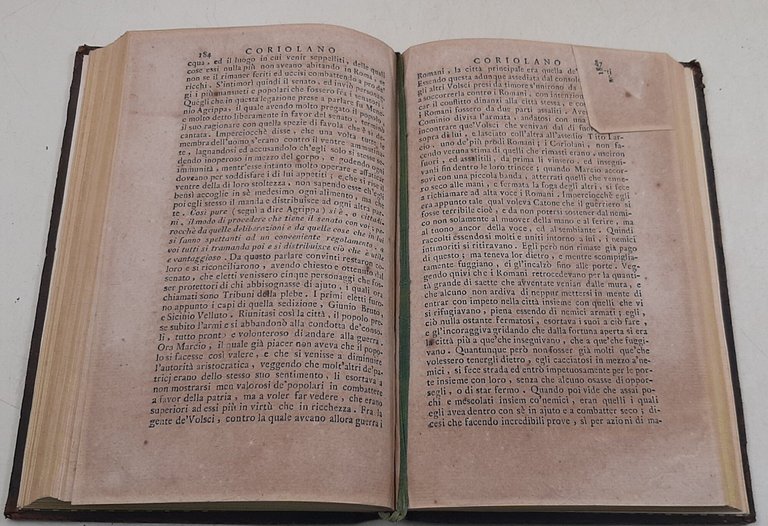 184 CORIOLANO
cqua, ed il luogo in cui venir seppelliti, delle quali
cose essi nulla più non aveano abitando in Roma, se
non se il rimaner feriti ed uccisi combattendo a pro de'
ricchi. S'intimorì quindi il senato, ed inviò personag-
gi i più mansueti e popolari che fossero fra i senatori.
Quegli che in questa legazione prese a parlare fu Mene-
nio Agrippa, il quale avendo molto pregato il popolo,
e molto detto liberamente in favor del senato, terminò
il suo ragionare con quella spezie di favola che è sì de-
cantata. Imperciocchè disse, che una volta tutte le
membra dell'uomo s'erano contro il ventre ammutina-
te, lagnandosi ed accusandolo ch'egli solo si stesse se-
dendo inoperoso in mezzo del corpo, e godendo ogni
immunità, mentr'esse intanto molto operare e affaticar
doveano per soddisfare i di lui appetiti; e che si rise il
ventre della di loro stoltezza, non sapendo esse ch'egli
bensì accoglie in sè medesimo ogni alimento, ma che
poi egli stesso il manda e distribuisce ad ogni altra par-
te. Così pure (seguì a dire Agrippa) si è, o cittadi-
ni, il modo di procedere che tiene il senato con voi; pe-
rocchè da quelle deliberazioni e da quelle cose che in
si fanno spettanti ad un conveniente regolamento, a
voi tutti si tramanda poi e si distribuisce ciò che è utile
e vantaggioso. Da questo parlare convinti restaron co-
loro e si riconciliarono, avendo chiesto e ottenuto dal
senato, che eletti venissero cinque personaggi che fos-
ser protettori di chi abbisognasse di ajuto, i quali ora
chiamati sono Tribuni della plebe. I primi eletti furo-
no appunto i capi di quella sedizione, Giunio Bruto,
e Sicinio Velluto. Riunitasi così la città, il popolo pre-
se subito l'armi e si abbandonò alla condotta de'conso-
li, tutto pronto e volonteroso di andare alla guerra.
Ora Marcio, il quale già piacer non avea che il popo-
lo si facesse così valere, e che si venisse a diminuire
l'autorità aristocratica, veggendo che molt'altri de'pa-
tricj erano dello stesso suo sentimento, li esortava a
non mostrarsi men valorosi de'popolari in combattere
a favor della patria, ma a voler far vedere, che erano
superiori ad essi più in virtù che in ricchezza. Fra la
gente de'Volsci, contro la quale aveano allora guerra i
CORIOLANO
Romani, la città principale era quella de'
Essendo questa adunque assediata dal console
gli altri Volsci presi da timore s'unirono da
a soccorrerla contro i Romani, con intenzion
car il conflitto dinanzi alla città stessa, e co
i Romani fossero da due parti assaliti. Aven
Cominio divisa l'armata, andatos con una
incontrare que'Volsci che venivan dal di fuori
do di lui, e lasciato coll'altra all'assedio Tito Lar-
zio, uno de'più prodi Romani, i Coriolani, non fa-
cendo veruna stima di quelli che rimasti erano, usciron
fuori, ed assalitili, da prima li vinsero, ed insegui-
vanli fin dentro le loro trincee; quando Marcio accor-
sovi con una picciola banda, atterrati quelli che venne-
ro seco alle mani, e fermata la foga degli altri, si fece
a richiamare ad alta voce i Romani. Imperciocchè egli
era appunto tale qual voleva Catone che il guerriero si
fosse terribile cioè, e da non potersi sostener dal nemi-
co non solamente al muover della mano e al ferire, ma
al tuono ancor della voce, ed al sembiante. Quindi
raccolti essendosi molti e uniti intorno a lui, i nemici
intimoriti si ritiravano. Egli però non rimase già pago
di questo; ma teneva lor dietro, e mentre scompiglia-
tamente fuggiano, ei gl'incalzò fino alle porte. Veg-
gendo quivi che i Romani retrocedevano per la quanti-
tà grande di saette che avventate venian dalle mura, e
che alcuno non ardiva di neppur mettersi in mente di
entrar con impeto nella città insieme con quelli che vi
si rifugiavano, piena essendo di nemici armati; egli,
ciò nulla ostante fermatosi, esortava i suoi a ciò fare,
e gl'incoraggiva gridando che dalla fortuna aperta si era
la città più a que'che inseguivano, che a que'che fuggi-
vano. Quantunque però non fosser già molti que'che
volessero tenergli dietro, egli cacciatosi in mezzo a'ne-
mici, si fece strada ed entrò impetuosamente per le por-
te insieme con loro, senza che alcuno osasse di oppor-
segli, o di star fermo. Quando poi vide che assai po-
chi e mescolati insiem co'nemici, eran quelli i quali
egli avea dentro con sè in ajuto e a combatter seco; di-
cesi che facendo incredibili prove, sì per azioni di ma-